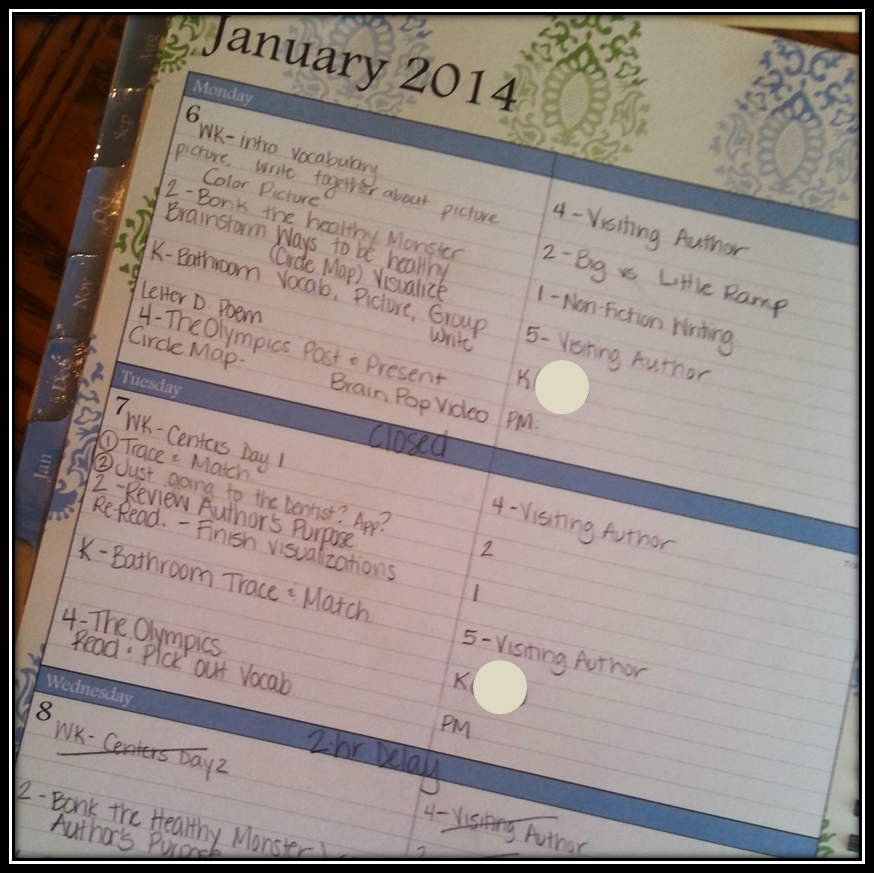 January 2014
Aug
Sep
Oct
Nov
Dec
Jan
Monday
6
WK- intro vocabulary
picture, write together about picture
Color Picture
2 - Bonk the healthy Monster
Brainstorm Ways to be healthy
(Circle Map) Visualize
K- Bathroom Vocab, Picture, Group
Write
Letter D. Poem
4- The Olympics Past & Present
Circle Map-
Brain Pop Video
4 - Visiting Author
2 - Big vs Little Ramp
1 - Non-Fiction Writing
5- Visiting Author
K
PM:
Tuesday
Closed
7
WK- Centers Day 1
① Trace & Match
② Just going to the Dentist? App?
2 - Review Author's Purpose
Re-Read. - Finish visualizations
K - Bathroom Trace & Match
4 - The Olympics.
Read & Pick out Vocab
4 - Visiting Author
2
1
5 - Visiting Author
K
PM
Wednesday
2-hr Delay
8
WK- Centers Day 2
2 - Bonk the Healthy Monster
Author's Purpose
4- Visiting Author
2